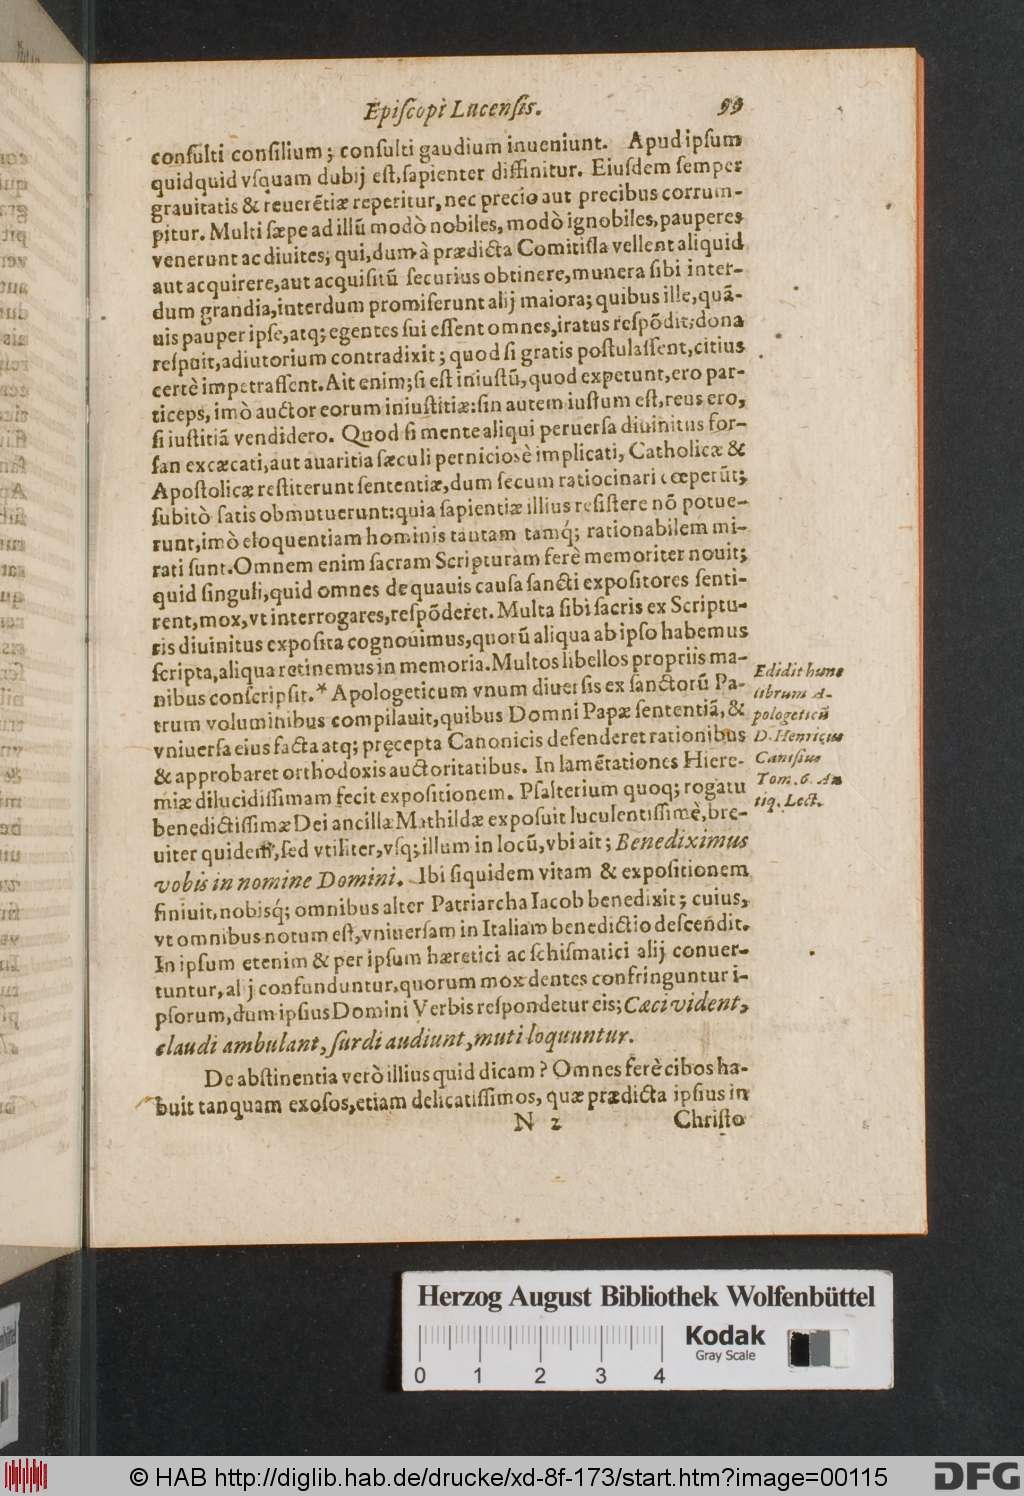 Epiſcopi Lucenſis. 99
conſulti conſilium; conſulti gaudium inueniunt. Apud ipſum
quidquid vſquam dubij eſt, ſapienter diffinitur. Eiuſdem ſemper
grauitatis & reuerẽtiæ reperitur, nec precio aut precibus corrum-
pitur. Multi ſæpe ad illũ modò nobiles, modò ignobiles, pauperes
venerunt ac diuites; qui, dum à prædicta Comitiſſa vellent aliquid
aut acquirere, aut acquiſitũ ſecurius obtinere, munera ſibi inter-
dum grandia, interdum promiſerunt alij maiora; quibus ille, quã-
uis pauper ipſe, atq; egentes ſui eſſent omnes, iratus reſpõdit; dona
reſpuit, adiutorium contradixit; quod ſi gratis poſtulaſſent, citius
certè impetraſſent. Ait enim; ſi eſt iniuſtũ, quod expetunt, ero par-
ticeps, imò auctor eorum iniuſtitiæ: ſin autem iuſtum eſt, reus ero,
ſi iuſtitiã vendidero. Quod ſi mente aliqui peruerſa diuinitus for-
ſan excæcati, aut auaritia ſæculi perniciosè implicati, Catholicæ &
Apoſtolicæ reſtiterunt ſententiæ, dum ſecum ratiocinari cœperũt;
ſubitò ſatis obmutuerunt: quia ſapientiæ illius reſiſtere nõ potue-
runt, imò eloquentiam hominis tantam tamq́; rationabilem mi-
rati ſunt. Omnem enim ſacram Scripturam ferè memoriter nouit;
quid ſinguli, quid omnes de quauis cauſa ſancti expoſitores ſenti-
rent, mox, vt interrogares, reſpõderet. Multa ſibi ſacris ex Scriptu-
ris diuinitus expoſita cognouimus, quorũ aliqua ab ipſo habemus
ſcripta, aliqua retinemus in memoria. Multos libellos propriis ma-
nibus conſcripſit.* Apologeticum vnum diuerſis ex ſanctorũ Pa-
trum voluminibus compilauit, quibus Domni Papæ ſententiã, &
vniuerſa eius facta atq; pręcepta Canonicis defenderet rationibus
& approbaret orthodoxis auctoritatibus. In lamẽtationes Hiere-
miæ dilucidiſſimam fecit expoſitionem. Pſalterium quoq; rogatu
benedictiſſimæ Dei ancillæ Mathildæ expoſuit luculentiſſimè, bre-
uiter quidem, ſed vtiliter, vſq; illum in locũ, vbi ait; Benediximus
vobis in nomine Domini. Ibi ſiquidem vitam & expoſitionem
finiuit, nobisq́; omnibus alter Patriarcha Iacob benedixit; cuius,
vt omnibus notum eſt, vniuerſam in Italiam benedictio deſcendit.
In ipſum etenim & per ipſum hæretici ac ſchiſmatici alij conuer-
tuntur, alij confunduntur, quorum mox dentes confringuntur i-
pſorum, dum ipſius Domini Verbis reſpondetur eis; Cæci vident,
claudi ambulant, ſurdi audiunt, muti loquuntur.
De abſtinentia verò illius quid dicam? Omnes ferè cibos ha-
buit tanquam exoſos, etiam delicatiſſimos, quæ prædicta ipſius in
N 2 Chriſto
Edidit hunc
librum A-
pologeticũ
D. Henricus
Caniſius
Tom. 6. An
tiq. Lect.
Herzog August Bibliothek Wolfenbüttel
Kodak
Gray Scale
0 1 2 3 4
© HAB http://diglib.hab.de/drucke/xd-8f-173/start.htm?image=00115
DFG